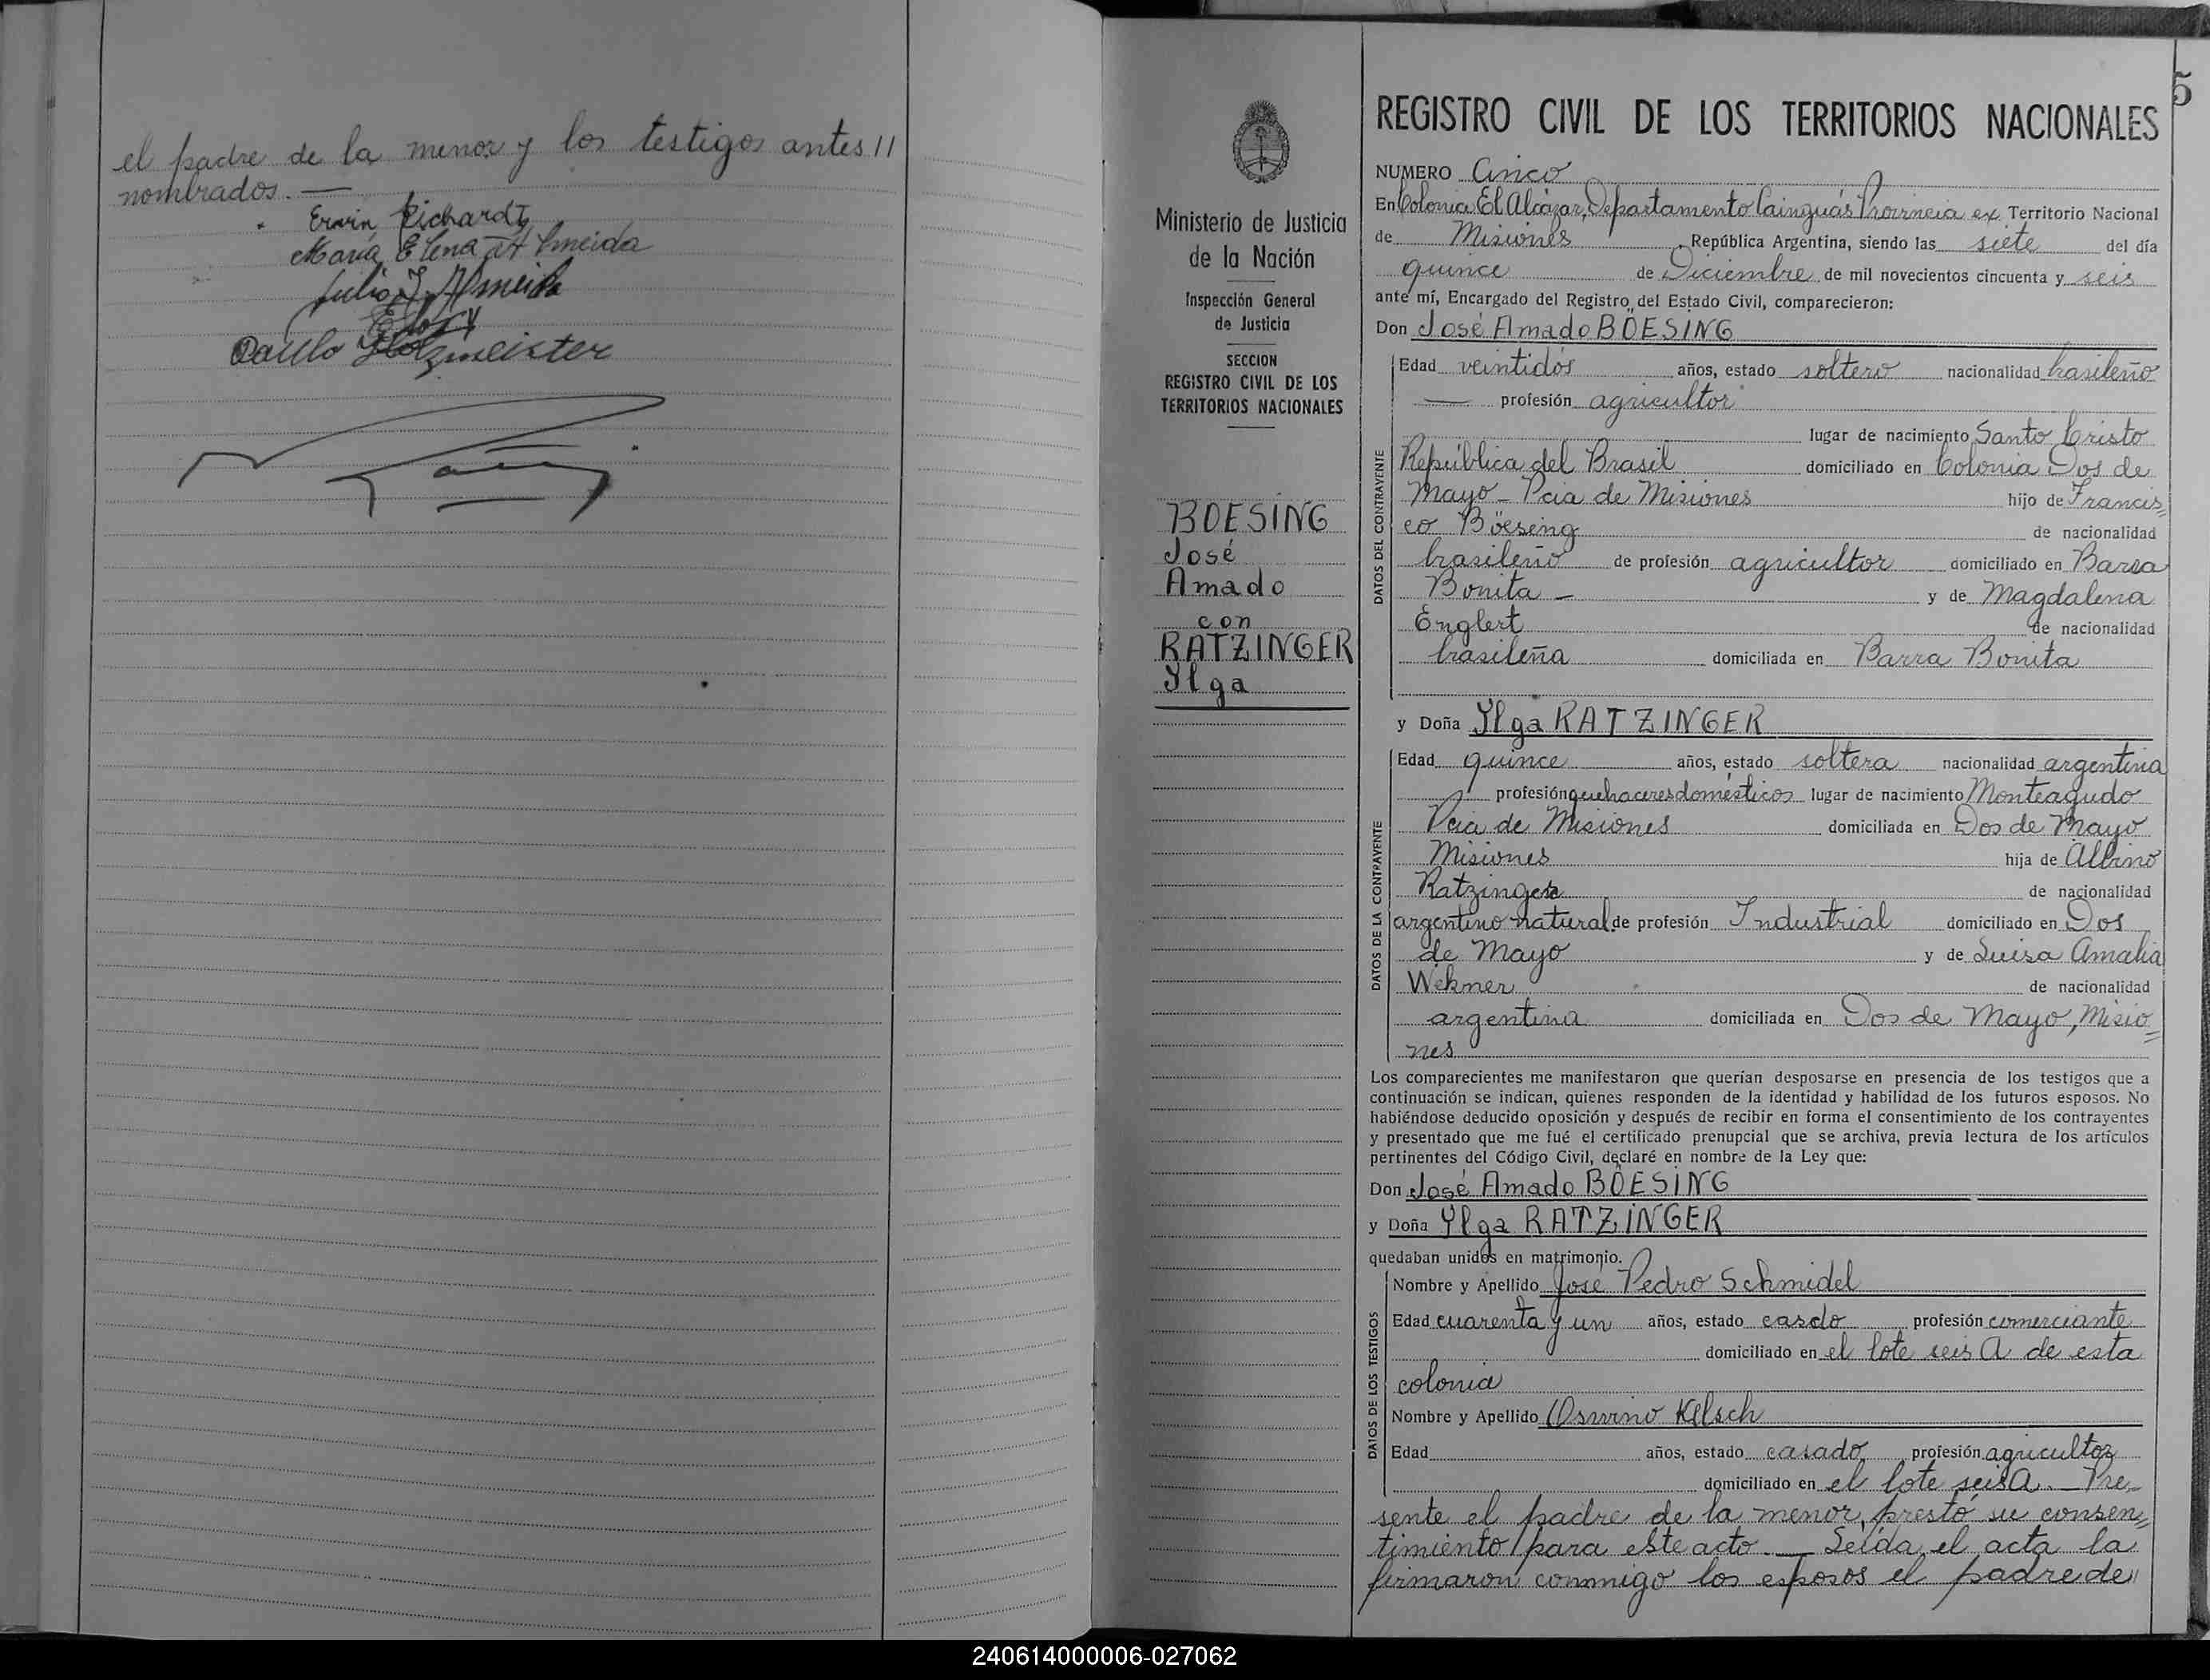 el padre de la menor y los testigos antes //
nombrados. —
Erwin Richardt
Maria Elena Almeida
Julio J. Almeida
Paulo Holzmeister
5
Ministerio de Justicia
de la Nación
Inspección General
de Justicia
SECCION
REGISTRO CIVIL DE LOS
TERRITORIOS NACIONALES
BOESING
José
Amado
con
RATZINGER
Ylga
REGISTRO CIVIL DE LOS TERRITORIOS NACIONALES
NUMERO Cinco
En Colonia El Alcázar, Departamento Cainguás Provincia ex Territorio Nacional
de Misiones, República Argentina, siendo las siete del día
quince de Diciembre de mil novecientos cincuenta y seis
ante mí, Encargado del Registro del Estado Civil, comparecieron:
Don José Amado BÖESING
DATOS DEL CONTRAYENTE
Edad veintidós años, estado soltero nacionalidad brasileño
— profesión agricultor
lugar de nacimiento Santo Cristo
República del Brasil domiciliado en Colonia Dos de
Mayo - Pcia de Misiones hijo de Francis=
co Böesing de nacionalidad
brasileño de profesión agricultor domiciliado en Barra
Bonita - y de Magdalena
Englert de nacionalidad
brasileña domiciliada en Barra Bonita
y Doña Ylga RATZINGER
DATOS DE LA CONTRAYENTE
Edad quince años, estado soltera nacionalidad argentina
profesión quehaceres domésticos lugar de nacimiento Monteagudo
Pcia de Misiones domiciliada en Dos de Mayo
Misiones hija de Albino
Ratzinger de nacionalidad
argentino natural. de profesión Industrial domiciliado en Dos
de Mayo y de Luisa Amalia
Wekner de nacionalidad
argentina domiciliada en Dos de Mayo, Misio=
nes
Los comparecientes me manifestaron que querían desposarse en presencia de los testigos que a
continuación se indican, quienes responden de la identidad y habilidad de los futuros esposos. No
habiéndose deducido oposición y después de recibir en forma el consentimiento de los contrayentes
y presentado que me fué el certificado prenupcial que se archiva, previa lectura de los artículos
pertinentes del Código Civil, declaré en nombre de la Ley que:
Don José Amado BÖESING
y Doña Ylga RATZINGER
quedaban unidos en matrimonio.
DATOS DE LOS TESTIGOS
Nombre y Apellido José Pedro Schmidel
Edad cuarenta y un años, estado casado profesión comerciante
domiciliado en el lote seis A de esta
colonia
Nombre y Apellido Oswino Kelsch
Edad años, estado casado profesión agricultor
domiciliado en el lote seis A. — Pre=
sente el padre de la menor, prestó su consen=
timiento para este acto. — Leída el acta la
firmaron conmigo los esposos el padre de //
240614000006-027062